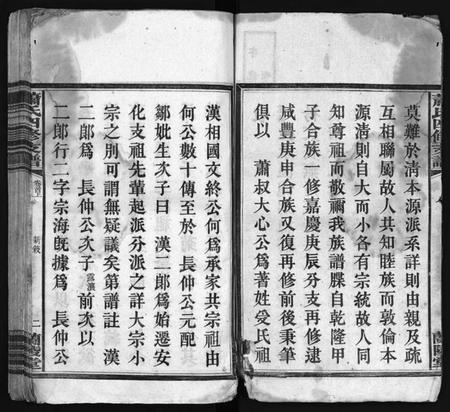 莫難於清本源派系詳則由親及疏
互相聯屬故人共知睦族而敦倫本
源清則自大而小各有宗統故人同
知尊祖而敬禰我族譜牒自乾隆甲
子合族一修嘉慶庚辰分支再修逮
咸豐庚申合族又復再修前後秉筆
俱以 蕭叔大心公為著姓爰氏祖
漢相國文終公何為承家共宗祖由
何公數十傳至於 長仲公元配
鄒妣生次子曰 漢二郎為始遷安
化支祖先輩起派分派之詳大宗小
宗之別可謂無疑議矣弟譜註 漢
二郎為 長仲公次子 前次以
二郎行二字宗海既據為 長仲公
蕭氏四修支譜
卷首
新敘
二
蘭陵堂